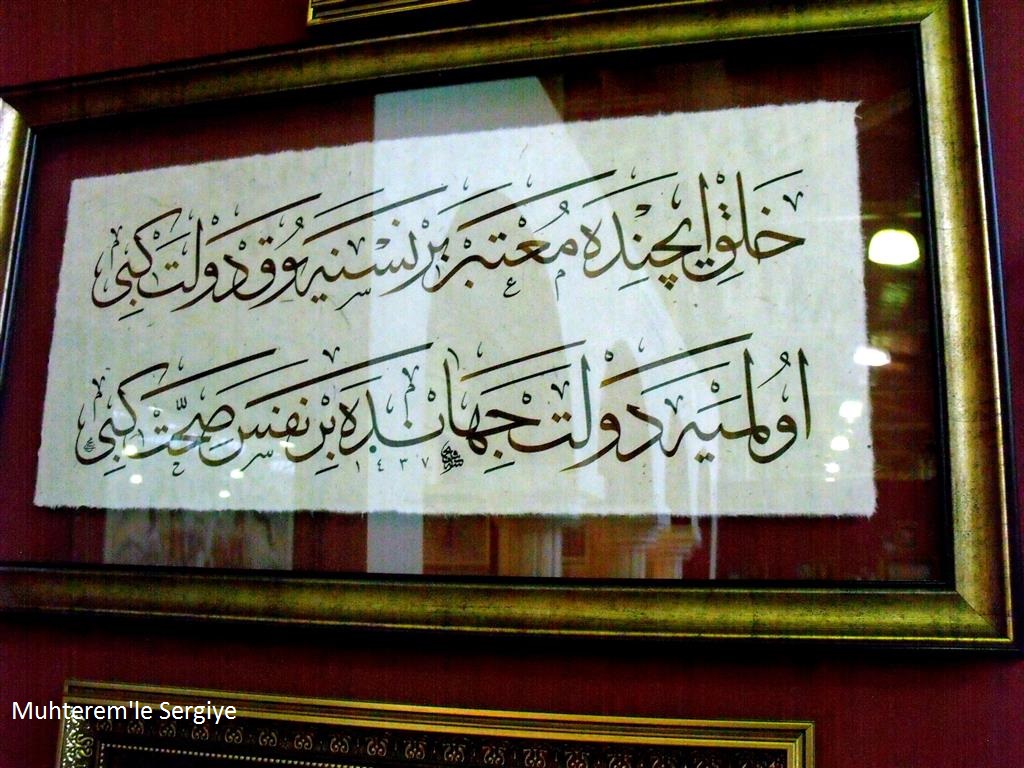 خلق ايچنده معتبر بر نسنه يوق دولت كبى
اولميه دولت جهانده بر نفس صحت كبى
١٤٣٧
Muhterem'le Sergiye